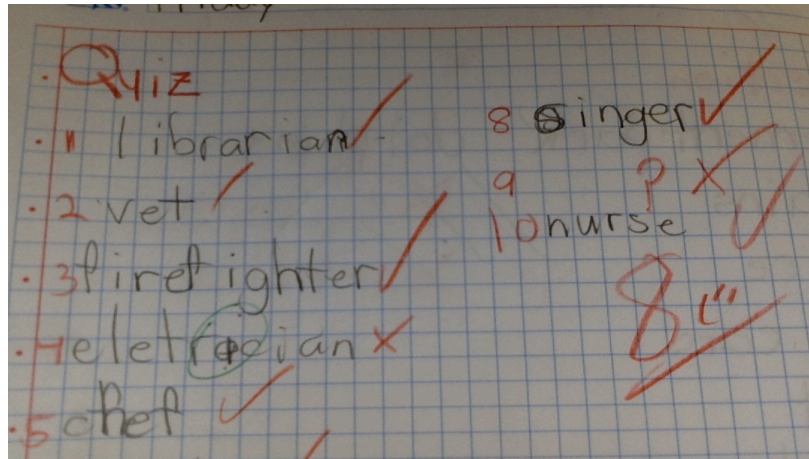 Quiz
1 librarian
2 vet
3 firefighter
5 chef
8 singer
9 ?
10 nurse
8